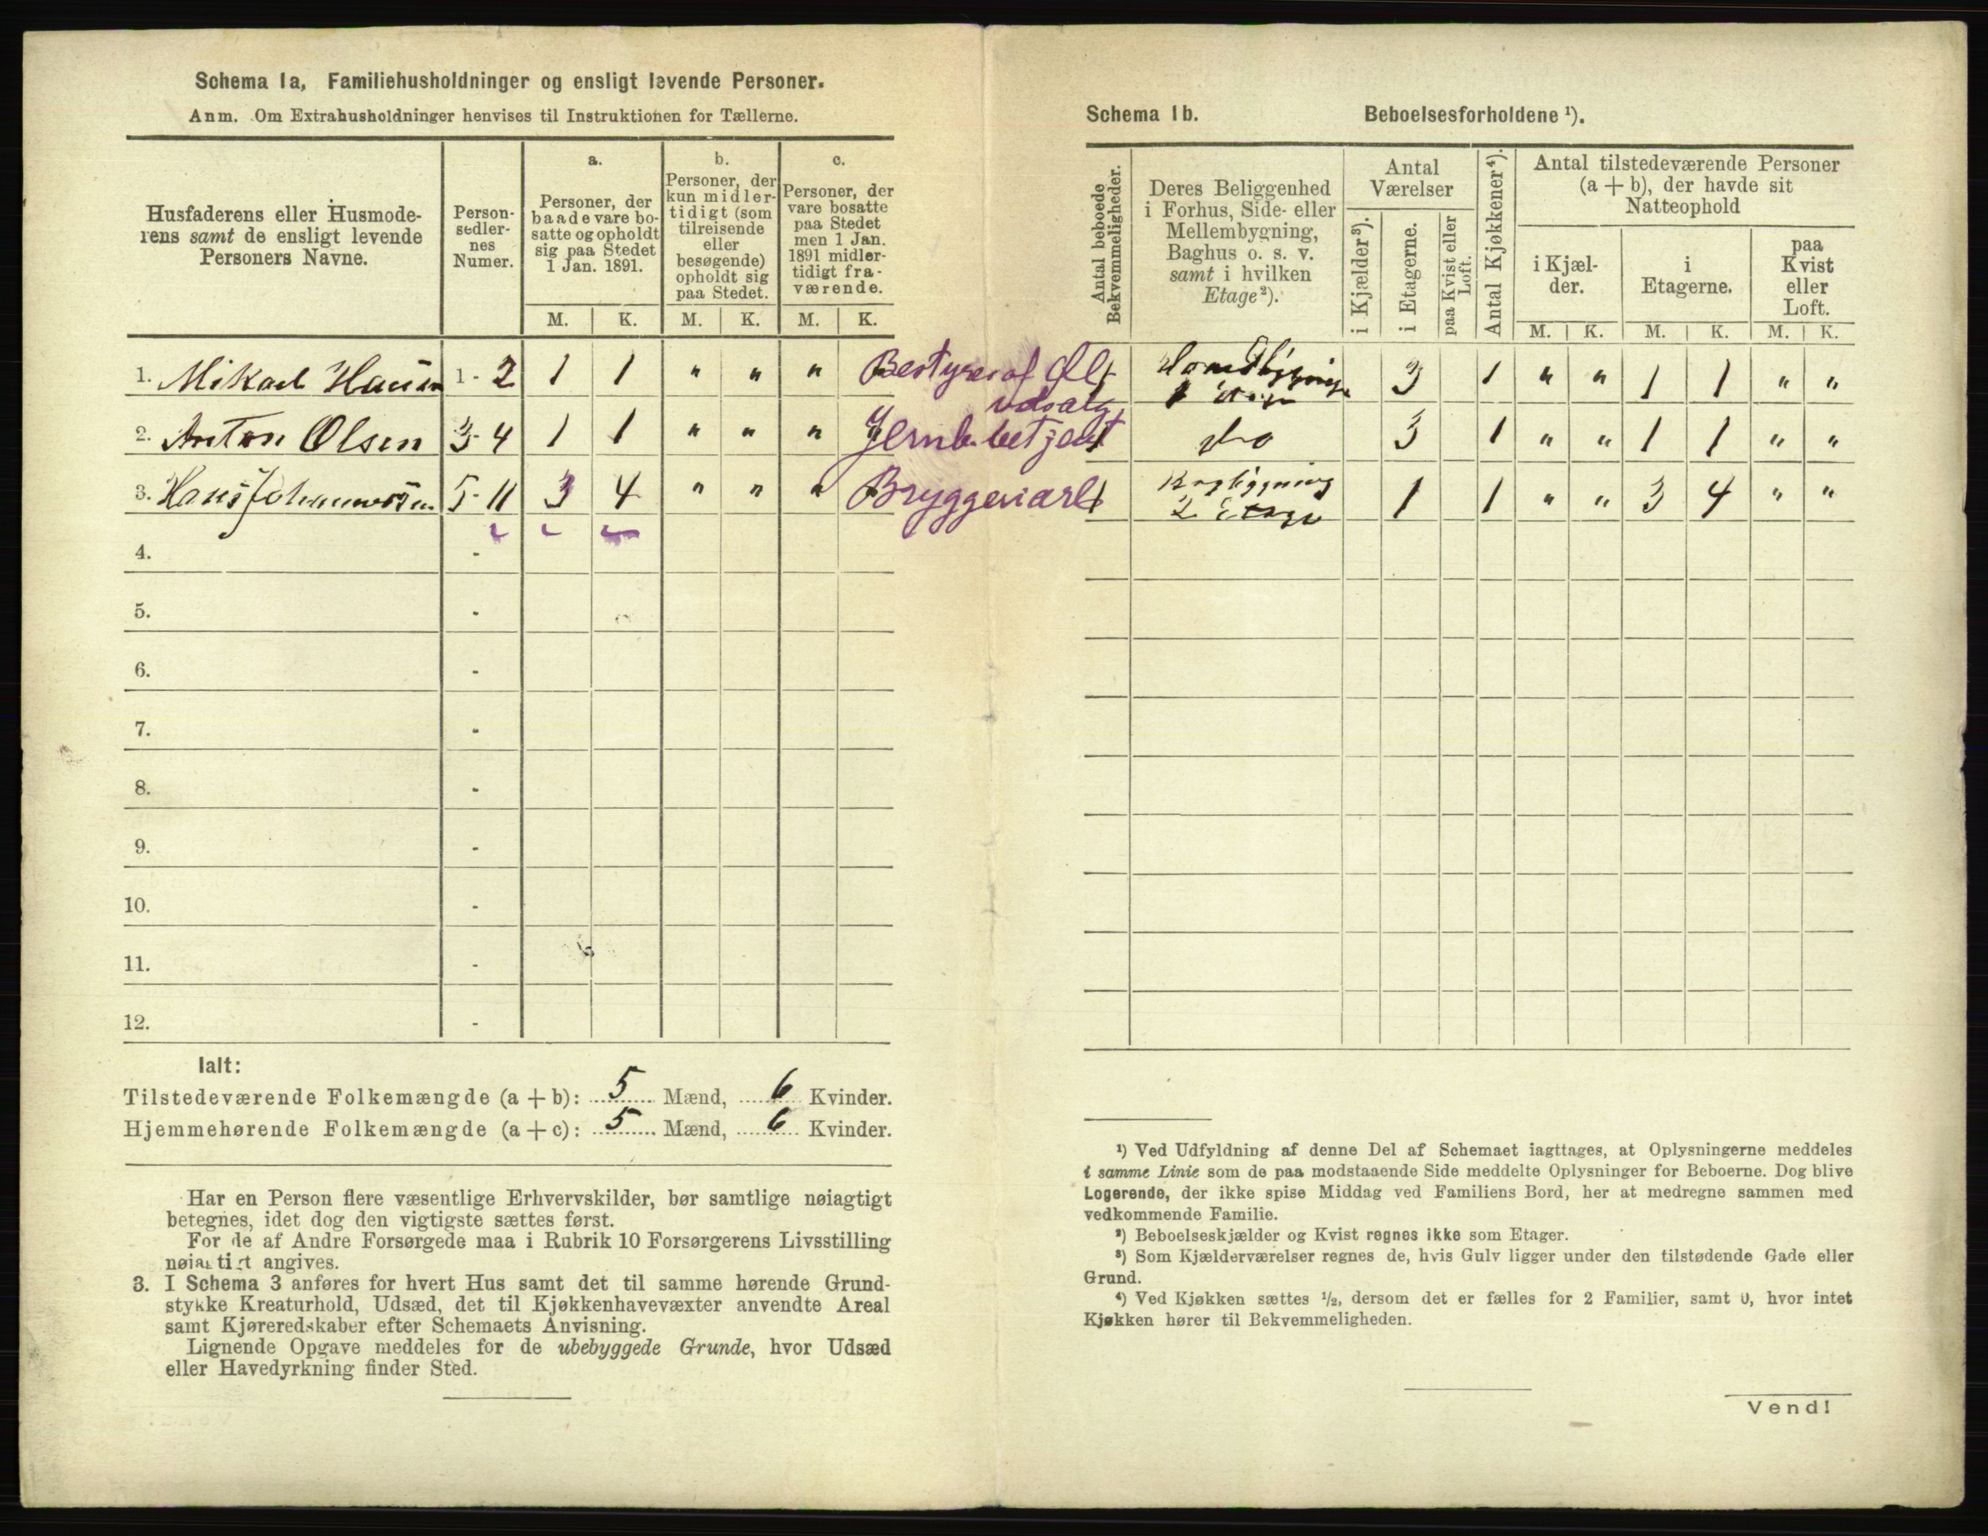 Schema 1a, Familiehusholdninger og ensligt levende Personer.
Anm. Om Extrahusholdninger henvises til Instruktionen for Tællerne.
Husfaderens eller Husmode-
rens samt de ensligt levende
Personers Navne.
Person-
sedler-
nes
Numer.
a.
Personer, der
baade vare bo-
satte og opholdt
sig paa Stedet
1 Jan. 1891.
b.
Personer, der
kun midler-
tidigt (som
tilreisende
eller
besøgende)
opholdt sig
paa Stedet.
c.
Personer, der
vare bosatte
paa Stedet
men 1 Jan.
1891 midler-
tidigt fra-
værende.
M. K. M. K. M. K.
1. Mikael Hansen 1 - 2 1 1 " " " Bestyrer af Øl-
udsalg
2. Anton Olsen 3 - 4 1 1 " " " Jernb. betjent
3. Hans Johannessen 5 - 11 3 4 " " " Bryggeriarb
4. -
5. -
6. -
7. -
8. -
9. -
10. -
11. -
12. -
Ialt:
Tilstedeværende Folkemængde (a + b): 5 Mænd, 6 Kvinder.
Hjemmehørende Folkemængde (a + c): 5 Mænd, 6 Kvinder.
Har en Person flere væsentlige Erhvervskilder, bør samtlige nøiagtigt
betegnes, idet dog den vigtigste sættes først.
For de af Andre Forsørgede maa i Rubrik 10 Forsørgerens Livsstilling
nøiagtigt angives.
3. I Schema 3 anføres for hvert Hus samt det til samme hørende Grund-
stykke Kreaturhold, Udsæd, det til Kjøkkenhavevæxter anvendte Areal
samt Kjøreredskaber efter Schemaets Anvisning.
Lignende Opgave meddeles for de ubebyggede Grunde, hvor Udsæd
eller Havedyrkning finder Sted.
Schema 1b. Beboelsesforholdene ¹).
Antal beboede
Bekvemmeligheder.
Deres Beliggenhed
i Forhus, Side- eller
Mellembygning,
Baghus o. s. v.
samt i hvilken
Etage ²).
Antal
Værelser
i Kjælder ³).
i Etagerne.
paa Kvist eller
Loft.
Antal Kjøkkener ⁴).
Antal tilstedeværende Personer
(a + b), der havde sit
Natteophold
i Kjæl-
der.
i
Etagerne.
paa
Kvist
eller
Loft.
M. K. M. K. M. K.
1 Etage 3 1 " " 1 1 " "
1 do 3 1 " " 1 1 " "
1 Bagbygning
2 Etage 1 1 " " 3 4 " "
¹) Ved Udfyldning af denne Del af Schemaet iagttages, at Oplysningerne meddeles
i samme Linie som de paa modstaaende Side meddelte Oplysninger for Beboerne. Dog blive
Logerende, der ikke spise Middag ved Familiens Bord, her at medregne sammen med
vedkommende Familie.
²) Beboelseskjælder og Kvist regnes ikke som Etager.
³) Som Kjælderværelser regnes de, hvis Gulv ligger under den tilstødende Gade eller
Grund.
⁴) Ved Kjøkken sættes ½, dersom det er fælles for 2 Familier, samt 0, hvor intet
Kjøkken hører til Bekvemmeligheden.
Vend!